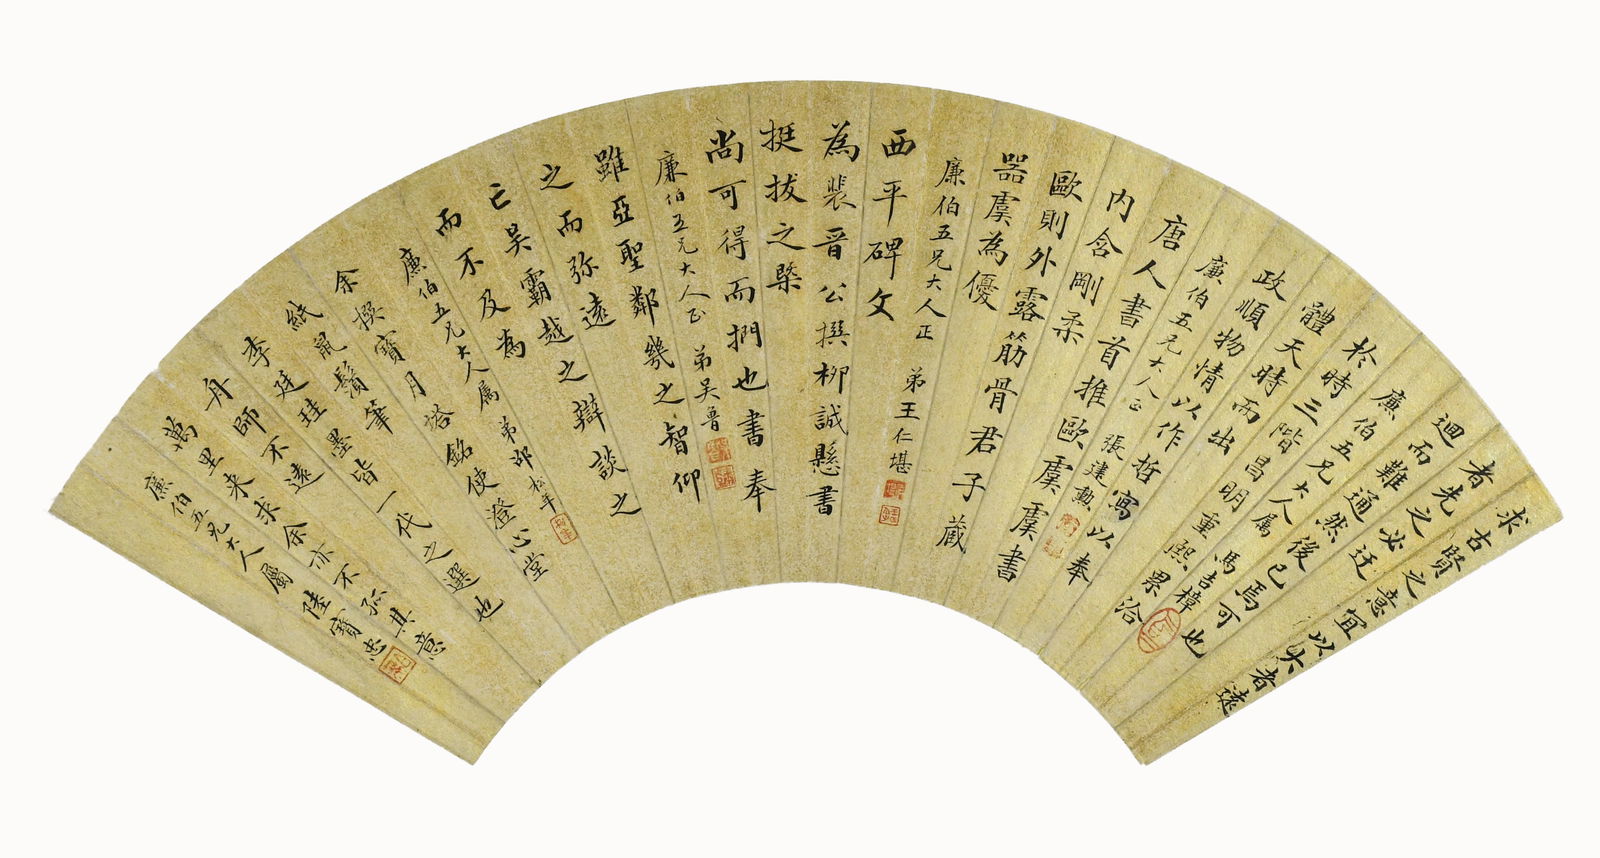 求古賢之意宜以大者遠
者先之必迂
迴而難通然後已焉可也
廉伯五兄大人属 馬吉樟
於時三階昌明重熙累洽
體天時而出
政順物情以作哲寫以奉
廉伯五兄大人正 張建勳
唐人書首推歐虞虞書
內含剛柔
歐則外露筋骨君子藏
器虞為優
廉伯五兄大人正 弟王仁堪
西平碑文
為裴晉公撰柳誠懸書
挺拔之槩
尚可得而捫也書奉
廉伯五兄大人正 弟吳魯
雖亞聖鄰幾之智仰
之而弥遠
亡吳霸越之辯談之
而不及為
廉伯五兄大人属 弟邵松年
余撰寶月塔銘使澄心堂
紙鼠鬚筆
李廷珪墨皆一代之選也
舟師不遠
萬里来求余亦不孤其意
廉伯五兄大人屬 陸寶忠